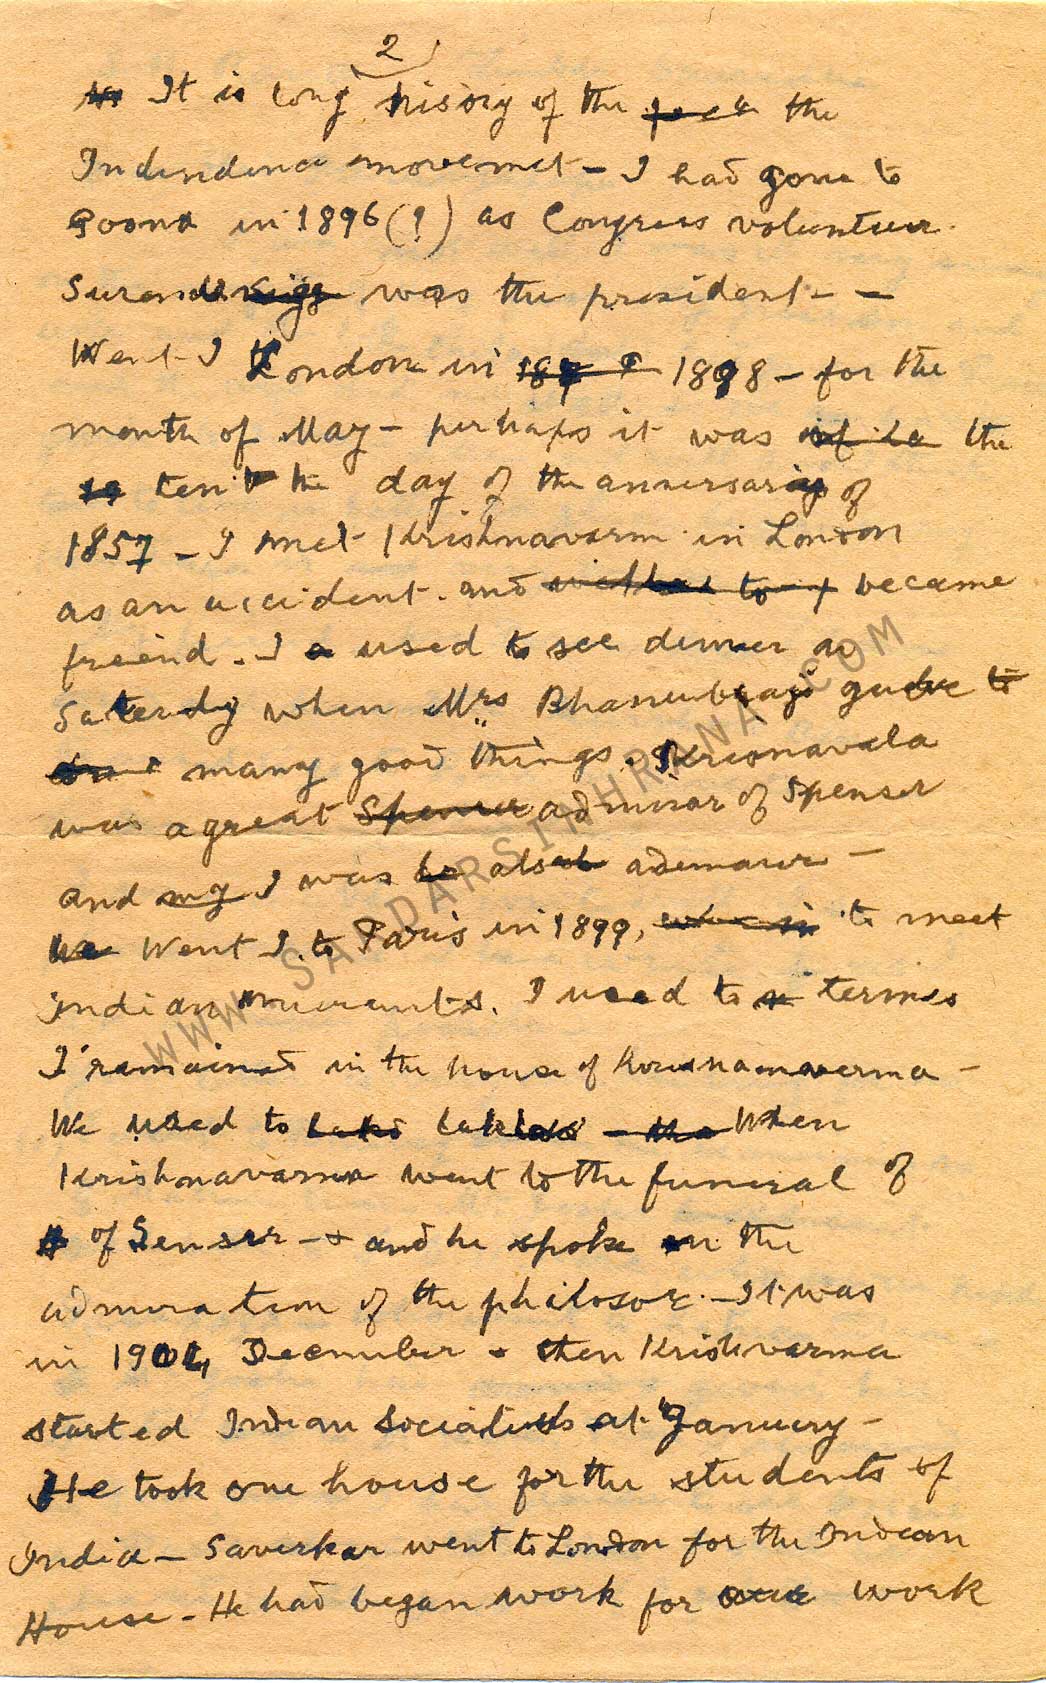 2
It is long hisory of the the
Indendence movemet - I had gone to
Poona in 1896 (?) as Congress volunteer.
Surend was the president - -
Went I London in 1898 - for the
month of May - perhaps it was the
tenth the day of the anversary of
1857 - I met Krishnavarm in London
as an accident. and became
freend. I used to see dinner as
Saterdy when Mrs Bhanubayi
many good things.
was a great admirar of Spenser
and I was also ademarer -
Went I to Paris in 1899, to meet
Indian I used to termes
I remained in the house of
We used to When
Krishnavarma went to the funeral of
of Senser - and he spoke in the
admiration of the philosor. - It was
in 1904 December then Krishvarma
started Indian at January -
He took one house for the students of
India - Saverkar went to London for the Indian
House - He had began work for work
WWW.SARDARSINHRANA.COM